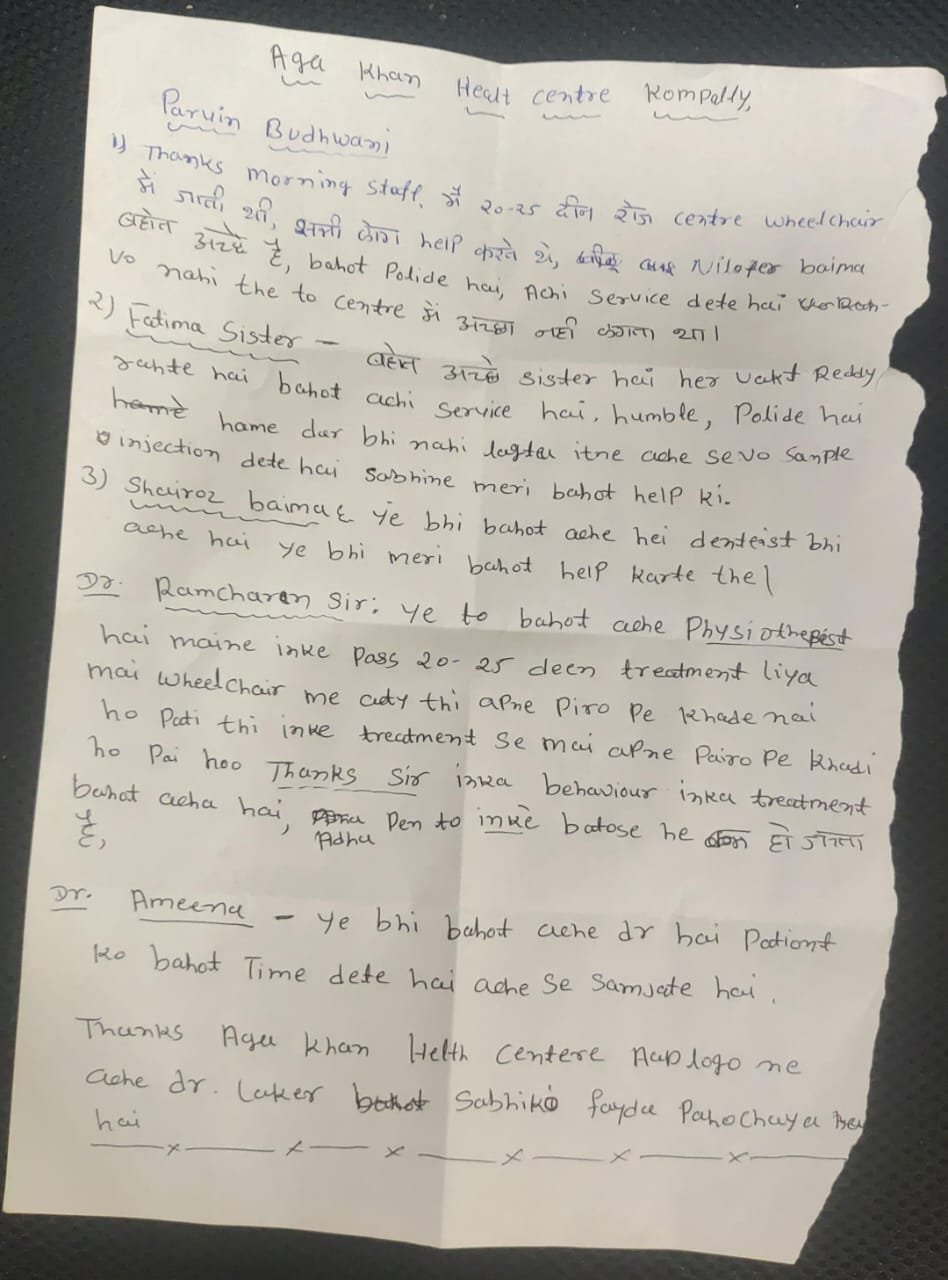 Aga Khan Healt centre Kompally,
Parvin Budhwani
1) Thanks morning staff. में 20-25 दीन रोज centre wheelchair
में जाती थी, सभी लोग help करते थे, Nilofer baima
बहोत अच्छे है, bahot Polide hai, Achi Service dete hai
vo nahi the to centre में अच्छा नही लगता था।
2) Fatima Sister – बहोत अच्छे sister hai her vakt Reddy
rahte hai bahot achi service hai, humble, Polide hai
hame hame dar bhi nahi lagta itne ache se vo Sanple
injection dete hai Sabhine meri bahot help ki.
3) Shairoz baima ye bhi bahot ache hei denteist bhi
ache hai ye bhi meri bahot help karte the|
Dr. Ramcharan Sir: ye to bahot ache Physiothepist
hai maine inke Pass 20-25 deen treatment liya
mai wheelchair me aaty thi apne Piro pe khade nai
ho Pati thi inke treatment se mai apne Pairo pe khadi
ho Pai hoo Thanks Sir inka behaviour inka treatment
bahot acha hai, Adha Pen to inke batose he हो जाता
है,
Dr. Ameena – ye bhi bahot ache dr hai Pationt
ko bahot Time dete hai ache se Samjate hai.
Thanks Aga Khan Helth Centere Aap logo ne
ache dr. Laker bahot Sabhiko fayda Pahochaya
hai